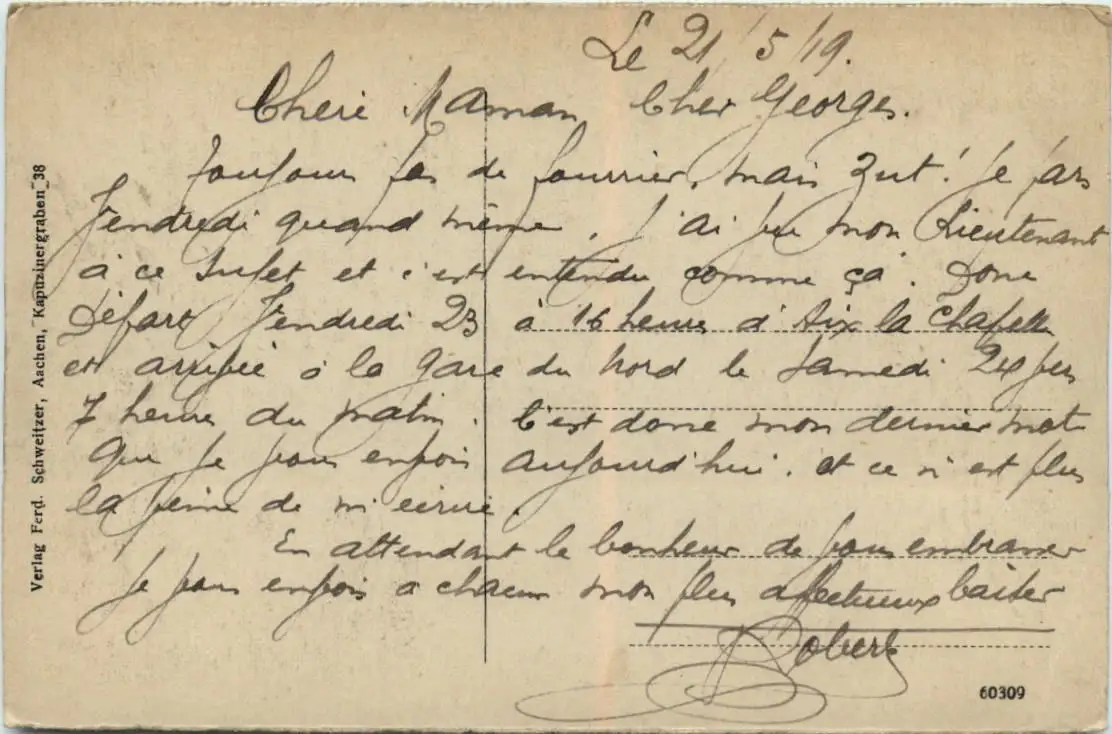 Le 21/5/19.
Cheri Maman, Cher Georges.
Toujours pas de fourrier, mais zut! Je pars
Vendredi quand même, J'ai vu mon Lieutenant
à ce sujet et c'est entendu comme ça. Donc
Départ Vendredi 23 à 16 heures d'Aix la Chapelle
et arrivée à la gare du Nord le Samedi 24 vers
7 heures du matin. C'est donc mon dernier mot
que je vous envois aujourd'hui. et ce n'est plus
la peine de m'ecrire.
En attendant le bonheur de vous embrasser
Je vous envois a chacun mon plus affectueux baiser
Robert
Verlag Ferd. Schweitzer, Aachen, Kapuzinergraben 38
60309